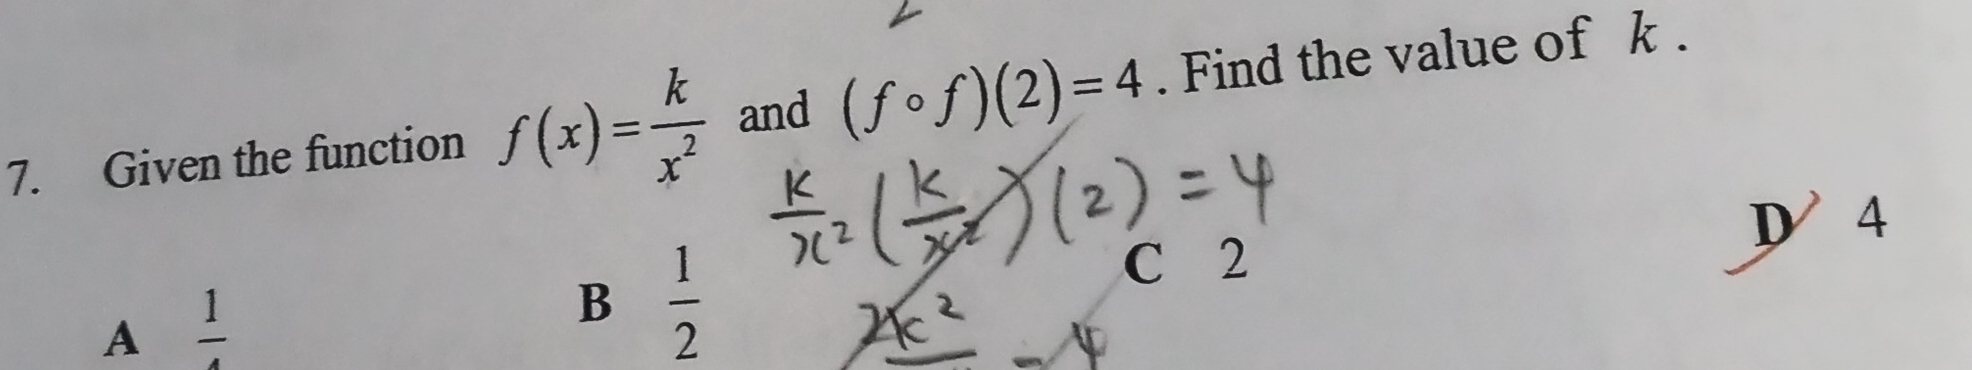 7. Given the function f(x) = k/x² and (f∘f)(2) = 4. Find the value of k.
K/x² (K/x²)(2) = 4
A 1/4 B 1/2 C 2 D 4
2k²
= 4